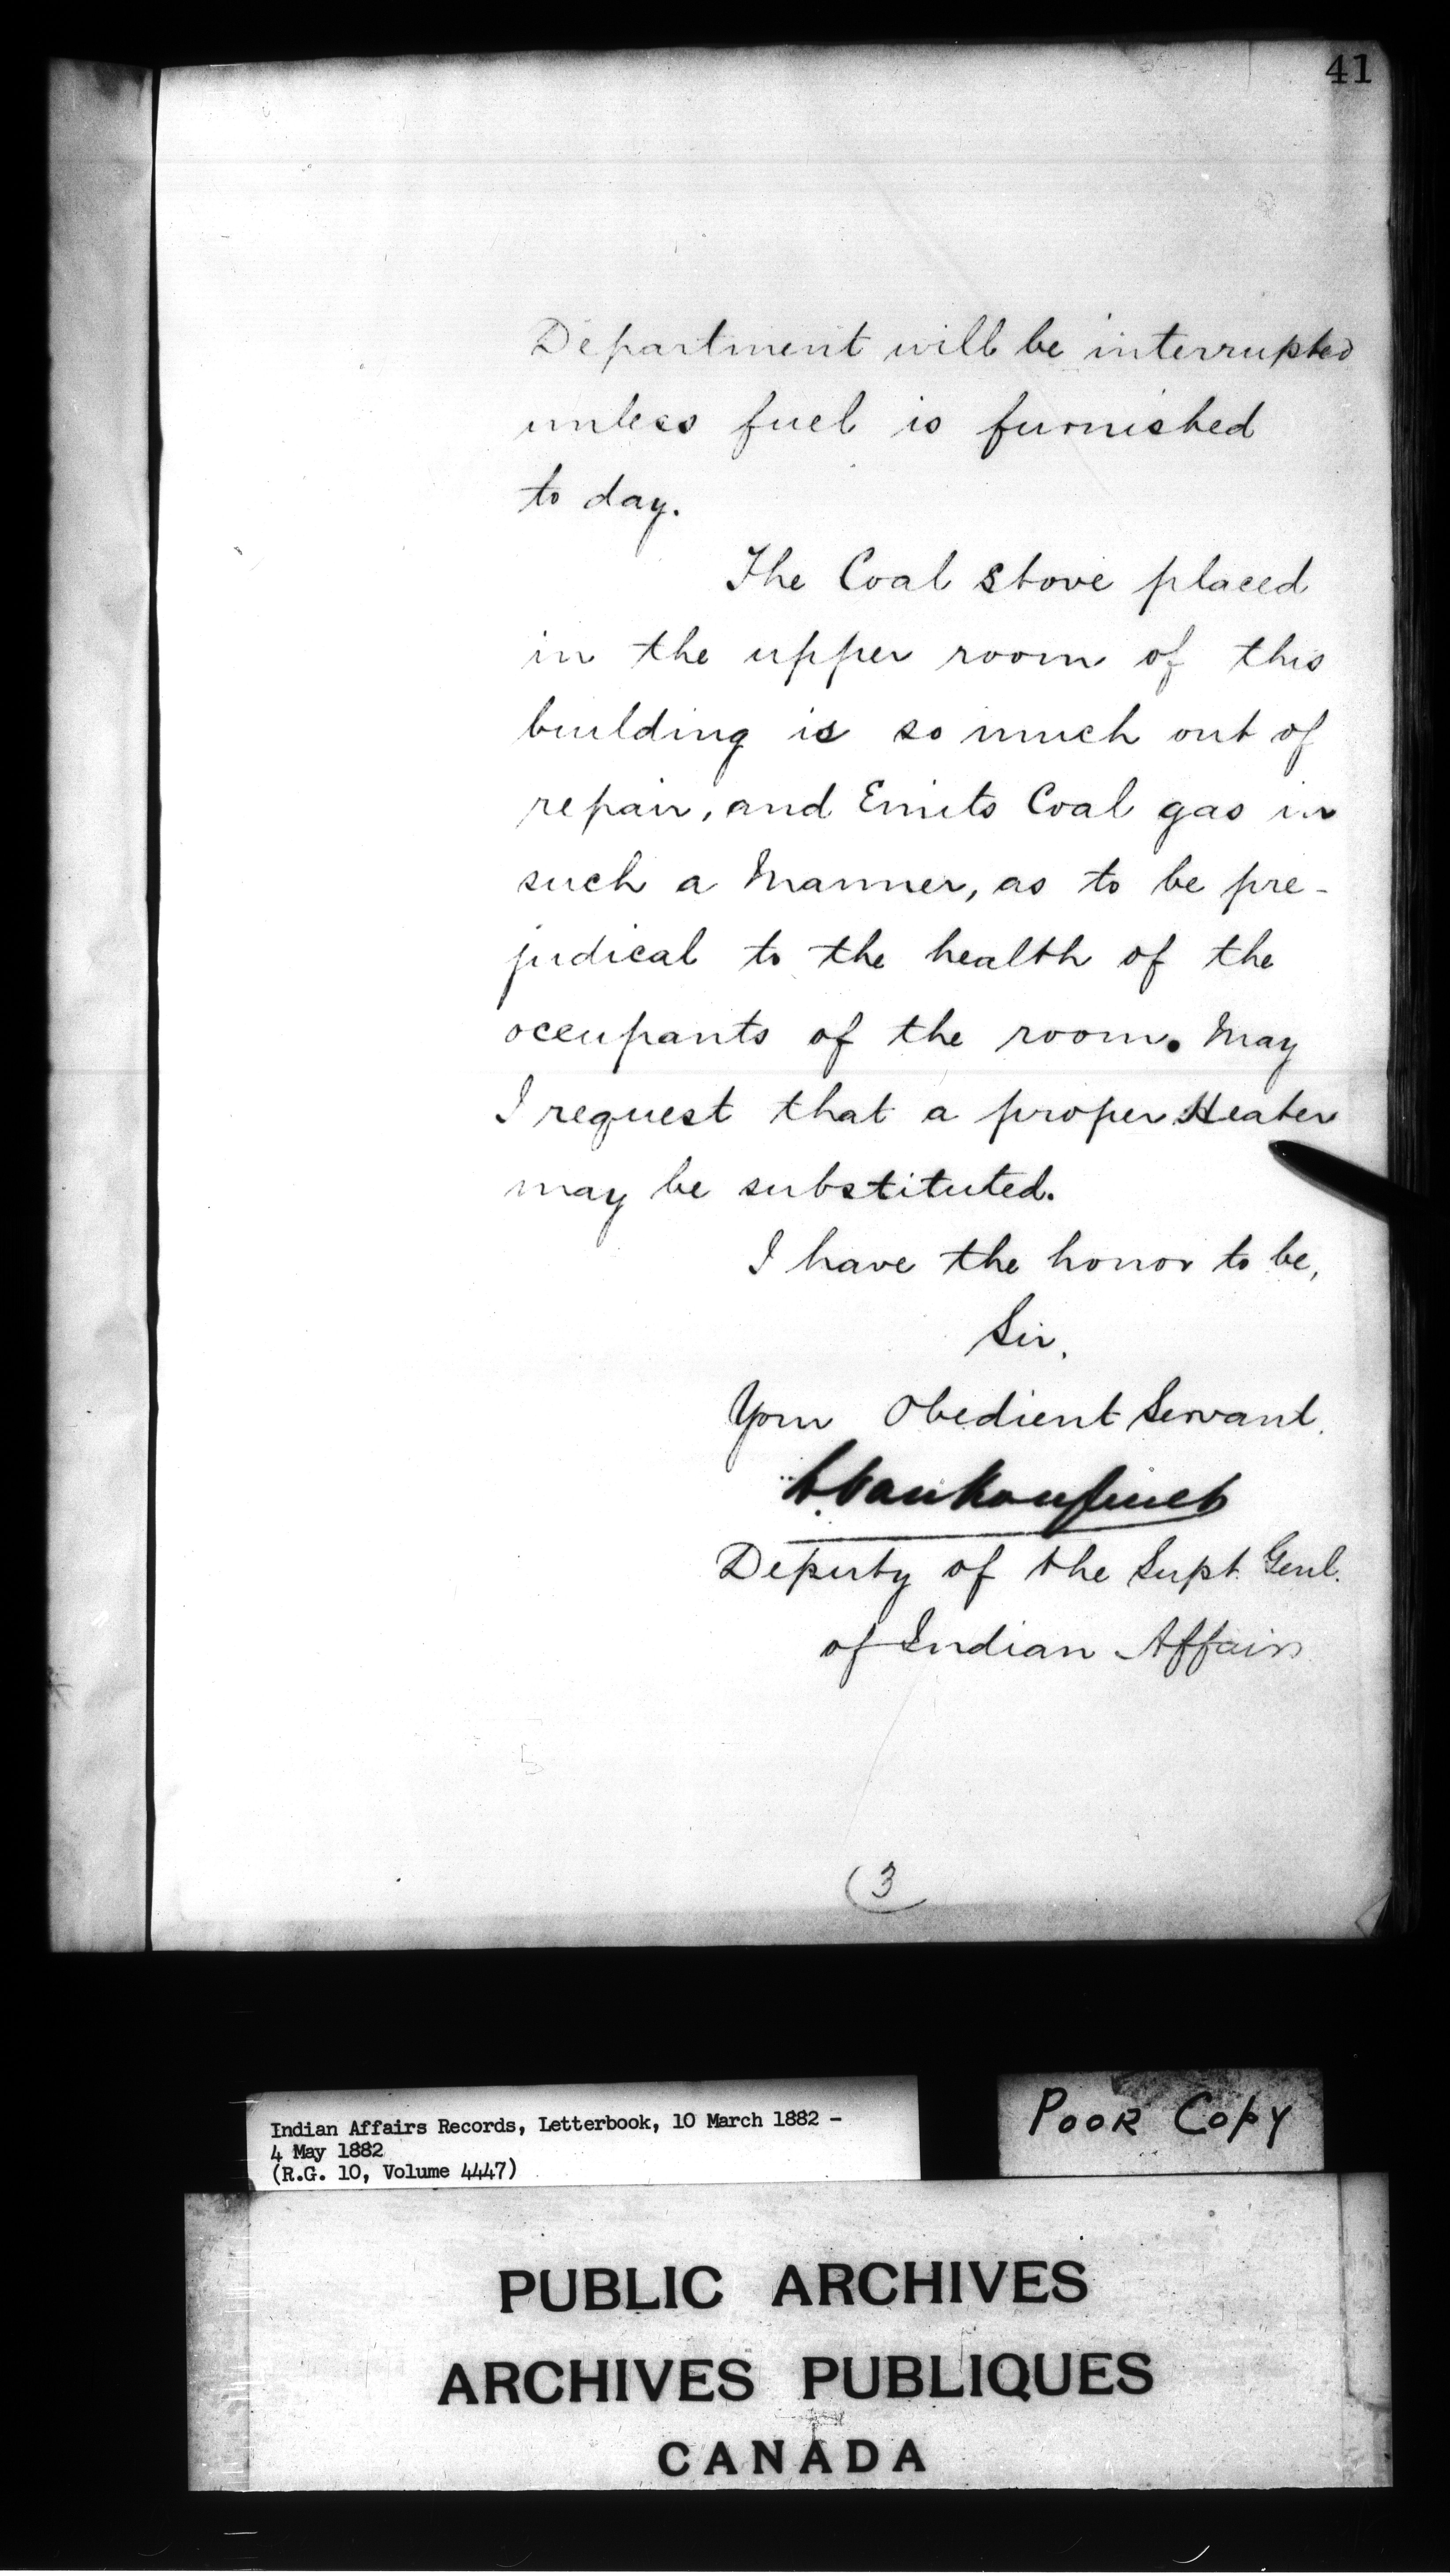 41
Department will be interrupted
unless fuel is furnished
to day.
The Coal Stove placed
in the upper room of this
building is so much out of
repair, and Emits Coal gas in
such a Manner, as to be pre-
judical to the health of the
occupants of the room. May
I request that a proper Heater
may be substituted.
I have the honor to be,
Sir,
Your Obedient Servant.
L. Vankoughnet
Deputy of the Supt. Genl.
of Indian Affairs
3
Indian Affairs Records, Letterbook, 10 March 1882 -
4 May 1882
(R.G. 10, Volume 4447)
POOR COPY
PUBLIC ARCHIVES
ARCHIVES PUBLIQUES
CANADA